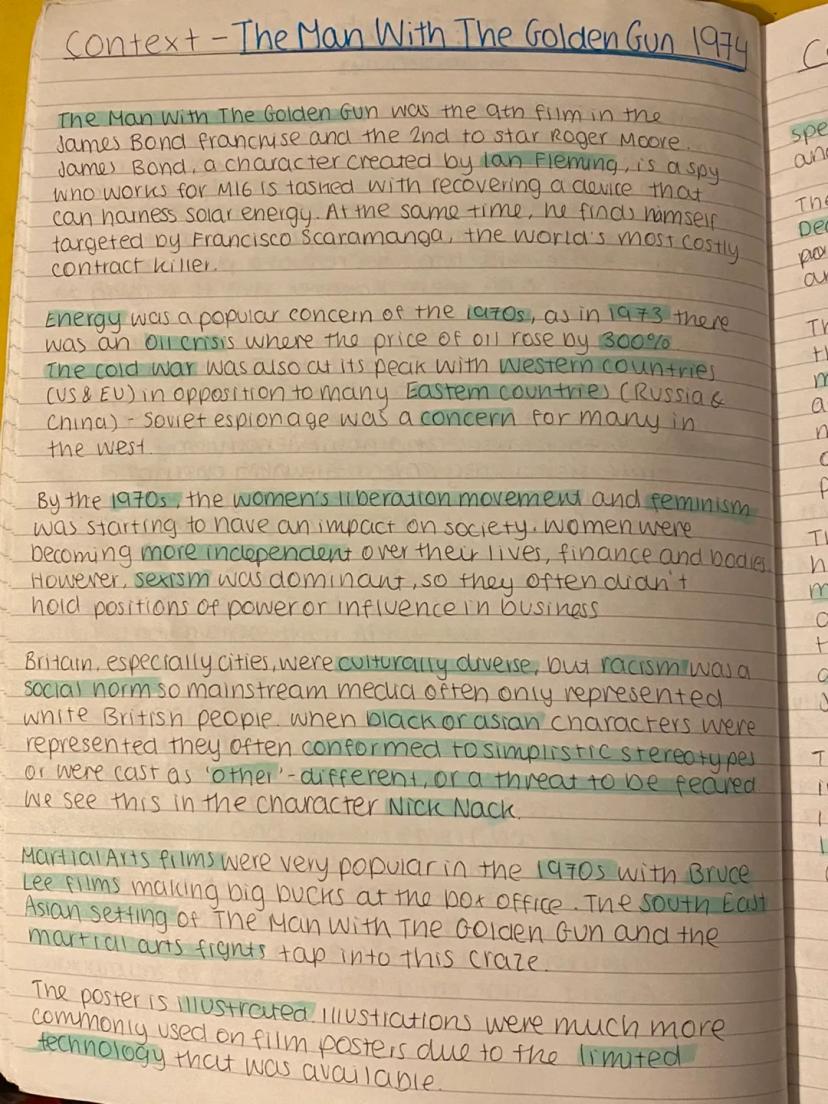 Context - The Man With The Golden Gun 1974
The Man With The Golden Gun was the 9th film in the
James Bond franchise and the 2nd to star Roger Moore.
James Bond, a character created by Ian Fleming, is a spy
who works for MI6 is tasked with recovering a device that
can harness solar energy. At the same time, he finds himself
targeted by Francisco Scaramanga, the world's most costly
contract killer.
Energy was a popular concern of the 1970s, as in 1973 there
was an oil crisis where the price of oil rose by 300%
The cold war was also at its peak with western countries
(US & EU) in opposition to many Eastern countries (Russia &
China) - Soviet espionage was a concern for many in
the west.
By the 1970s, the women's liberation movement and feminism
was starting to have an impact on society. Women were
becoming more independent over their lives, finance and bodies.
However, sexism was dominant, so they often didn't
hold positions of power or influence in business
Britain, especially cities, were culturally diverse, but racism was a
social norm so mainstream media often only represented
white British people. when black or asian characters were
represented they often conformed to simplistic stereotypes
or were cast as 'other' - different, or a threat to be feared
We see this in the character Nick Nack.
Martial Arts films were very popular in the 1970s with Bruce
Lee films making big bucks at the box office. The South East
Asian setting of The Man With The Golden Gun and the
martial arts fights tap into this craze.
The poster is illustrated. Illustrations were much more
commonly used on film posters due to the limited
technology that was available.